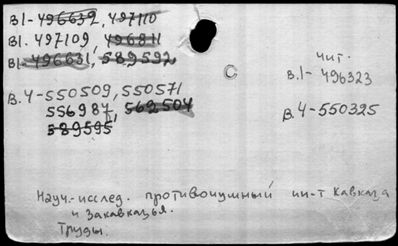 В1-496632, 497110
В1. 497109, 496811
В1-496631, 589592
В.4-550509, 550571
556987, 562504
589595
чит.
В.1-496323
В.4-550325
Науч.-исслед. противочумный ин-т Кавказа
и Закавказья.
Труды.